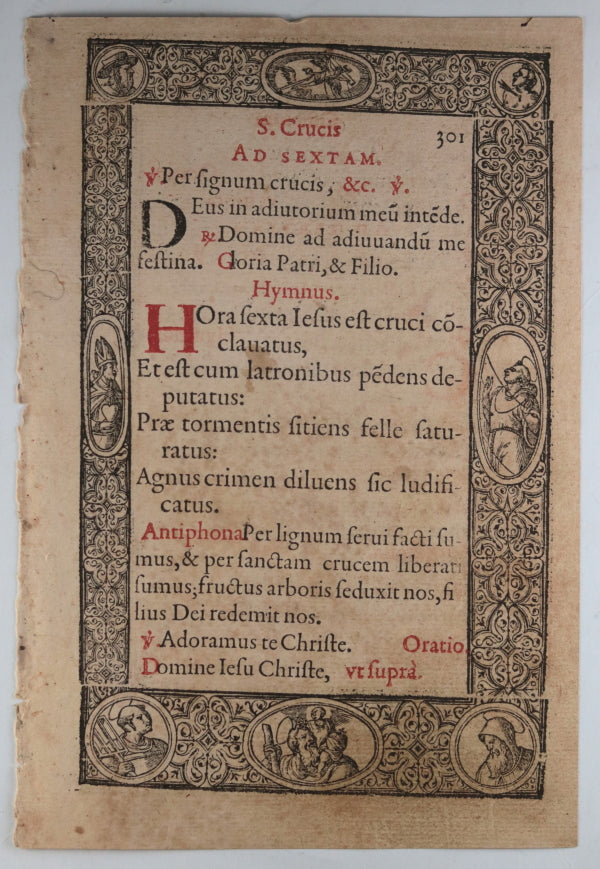 S. Crucis
301
AD SEXTAM.
℣ Per ſignum crucis, &c. ℣.
DEus in adiutorium meū intēde.
℟ Domine ad adiuuandū me
feſtina. Gloria Patri, & Filio.
Hymnus.
HOra ſexta Ieſus eſt cruci cō-
clauatus,
Et eſt cum latronibus pēdens de-
putatus:
Præ tormentis ſitiens felle ſatu-
ratus:
Agnus crimen diluens ſic ludifi-
catus.
Antiphona Per lignum ſerui facti ſu-
mus, & per ſanctam crucem liberati
ſumus; fructus arboris ſeduxit nos, fi
lius Dei redemit nos.
℣ Adoramus te Chriſte. Oratio.
Domine Ieſu Chriſte, vt ſuprà.